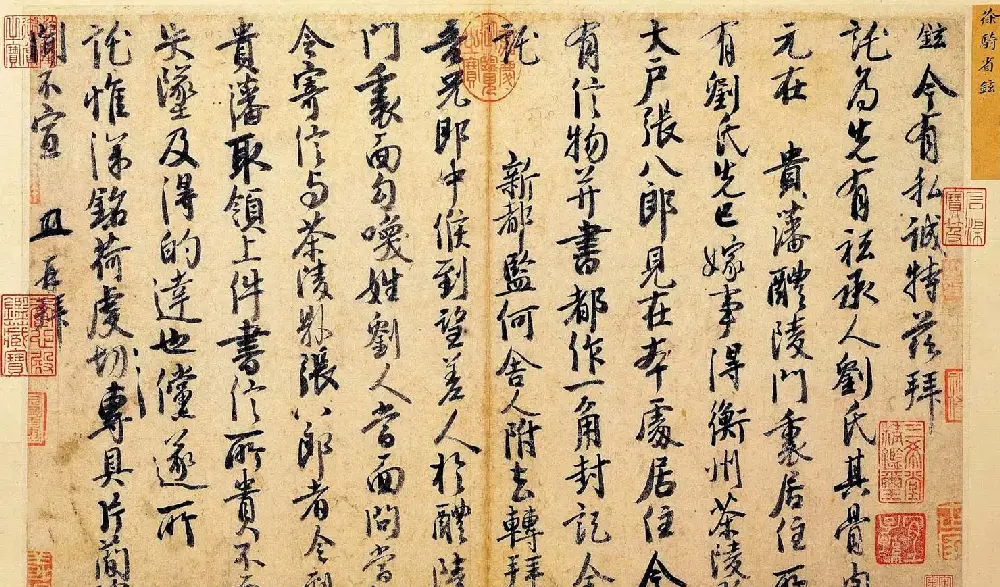 徐騎省鉉
鉉今有私誠特茲拜
託為先有祗承人劉氏其骨肉
元在 貴藩醴陵門裏居住所
有劉氏先已嫁事得衡州茶陵
大戶張八郎見在本處居住今
有信物并書都作一角封記全
託 新都監何舍人附去轉拜
吾兄郎中候到望差人於醴陵
門裏面勾喚姓劉人當面問當
令寄信与茶陵縣張八郎者令到
貴藩取領上件書信所貴不
失墜及得的達也儻遂所
託惟深銘荷虔切專具片簡
聞不宣 再拜